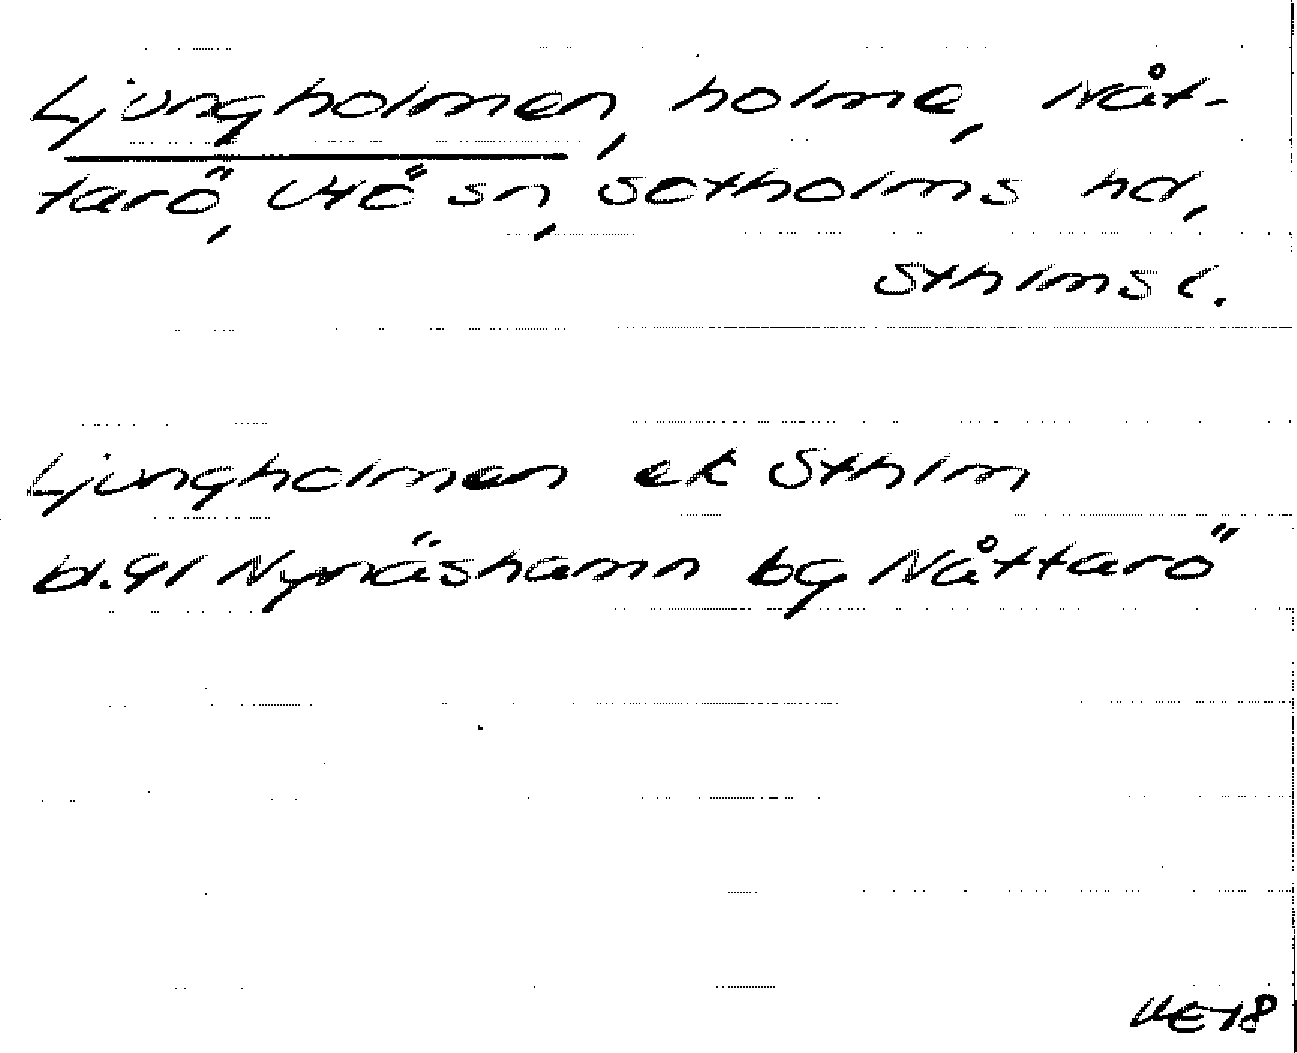 Ljungholmen, holme, Nåt-
tarö, Utö sn, Sotholms hd,
Sthlms l.
Ljungholmen ek Sthlm
bl. 91 Nynäshamn bg Nåttarö